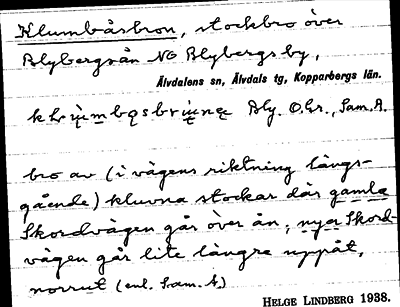 Klumbåsbron, stockbro över
Blybergsån NO Blybergs by,
Älvdalens sn, Älvdals tg, Kopparbergs län.
Bly. O.Lr., Sam. A.
bro av (i vägens riktning längs-
gående) kluvna stockar där gamla
Skordvägen går över ån; nya Skord-
vägen går lite längre uppåt,
norrut (enl. Sam. A.)
HELGE LINDBERG 1938.